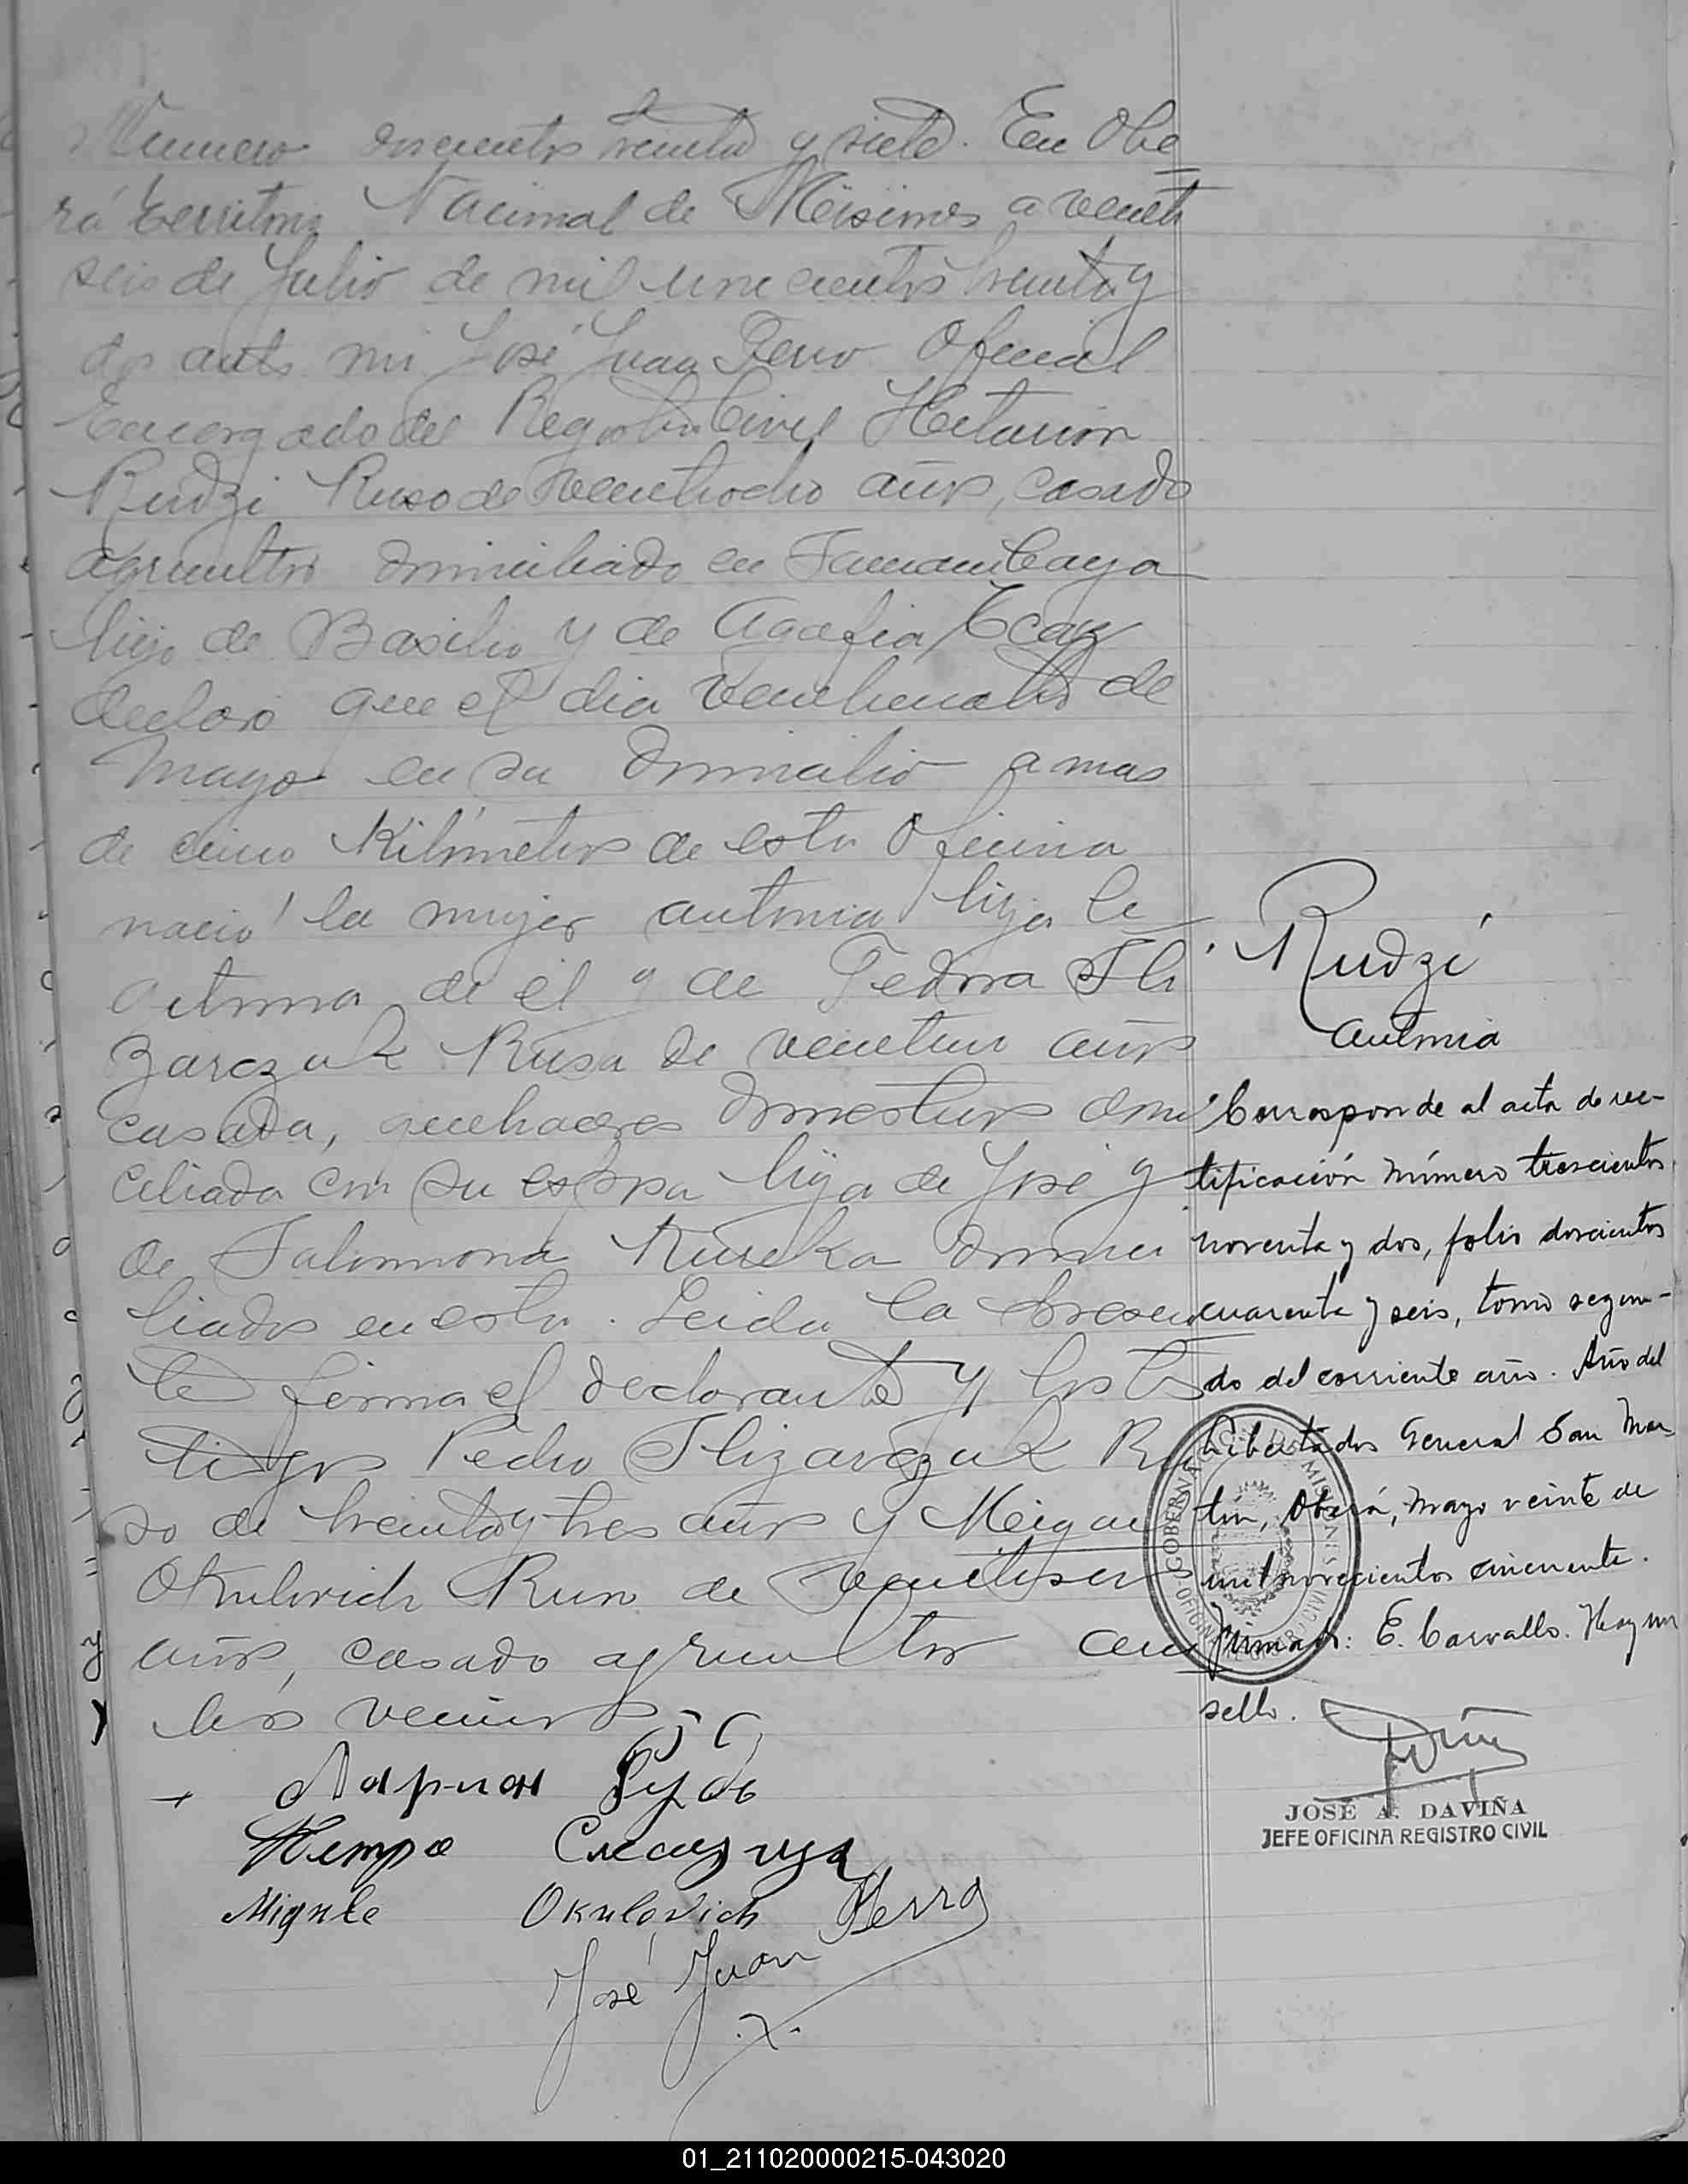 Numero doscientos treinta y siete. En Obe
rá territorio Nacional de Misiones a veinti
seis de Julio de mil novecientos treinta y
dos ante mi José Juan Ferro Oficial
Encargado del Registro Civil Hilarion
Rudzi Ruso de veintiocho años, casado
agricultor domiciliado en Tamanbaya
hijo de Basilio y de Agafia
declaró que el dia veinticuatro de
Mayo en su domicilio a mas
de cinco Kilómetros de esta Oficina
nació la mujer Antonia hija le
gitima de él y de Fedora Sli
zarczuk Rusa de veintiun años
casada, quehaceres domesticos domi
ciliada con su esposo hija de José y
de Salomona domici
liados en esta. Leida la presen
te firma el declarante y los tes
tigos Pedro Slizarczuk Ru
so de treinta y tres años y Miguel
Okulovich Ruso de veintiseis
años, casado agricultor am
bos vecinos
Ларион Рудь
Петро
Миguле Okulovich
José Juan Ferro
Rudzi
Antonia
Corresponde al acta de rec-
tificación número trescientos
noventa y dos, folio doscientos
cuarenta y seis, tomo segun-
do del corriente año. Año del
Libertador General San Mar
tin, Oberá, Mayo veinte de
mil novecientos cincuenta.
Firmado: E. Carvallo. Hay un
sello.
JOSÉ A. DAVIÑA
JEFE OFICINA REGISTRO CIVIL
01_211020000215-043020